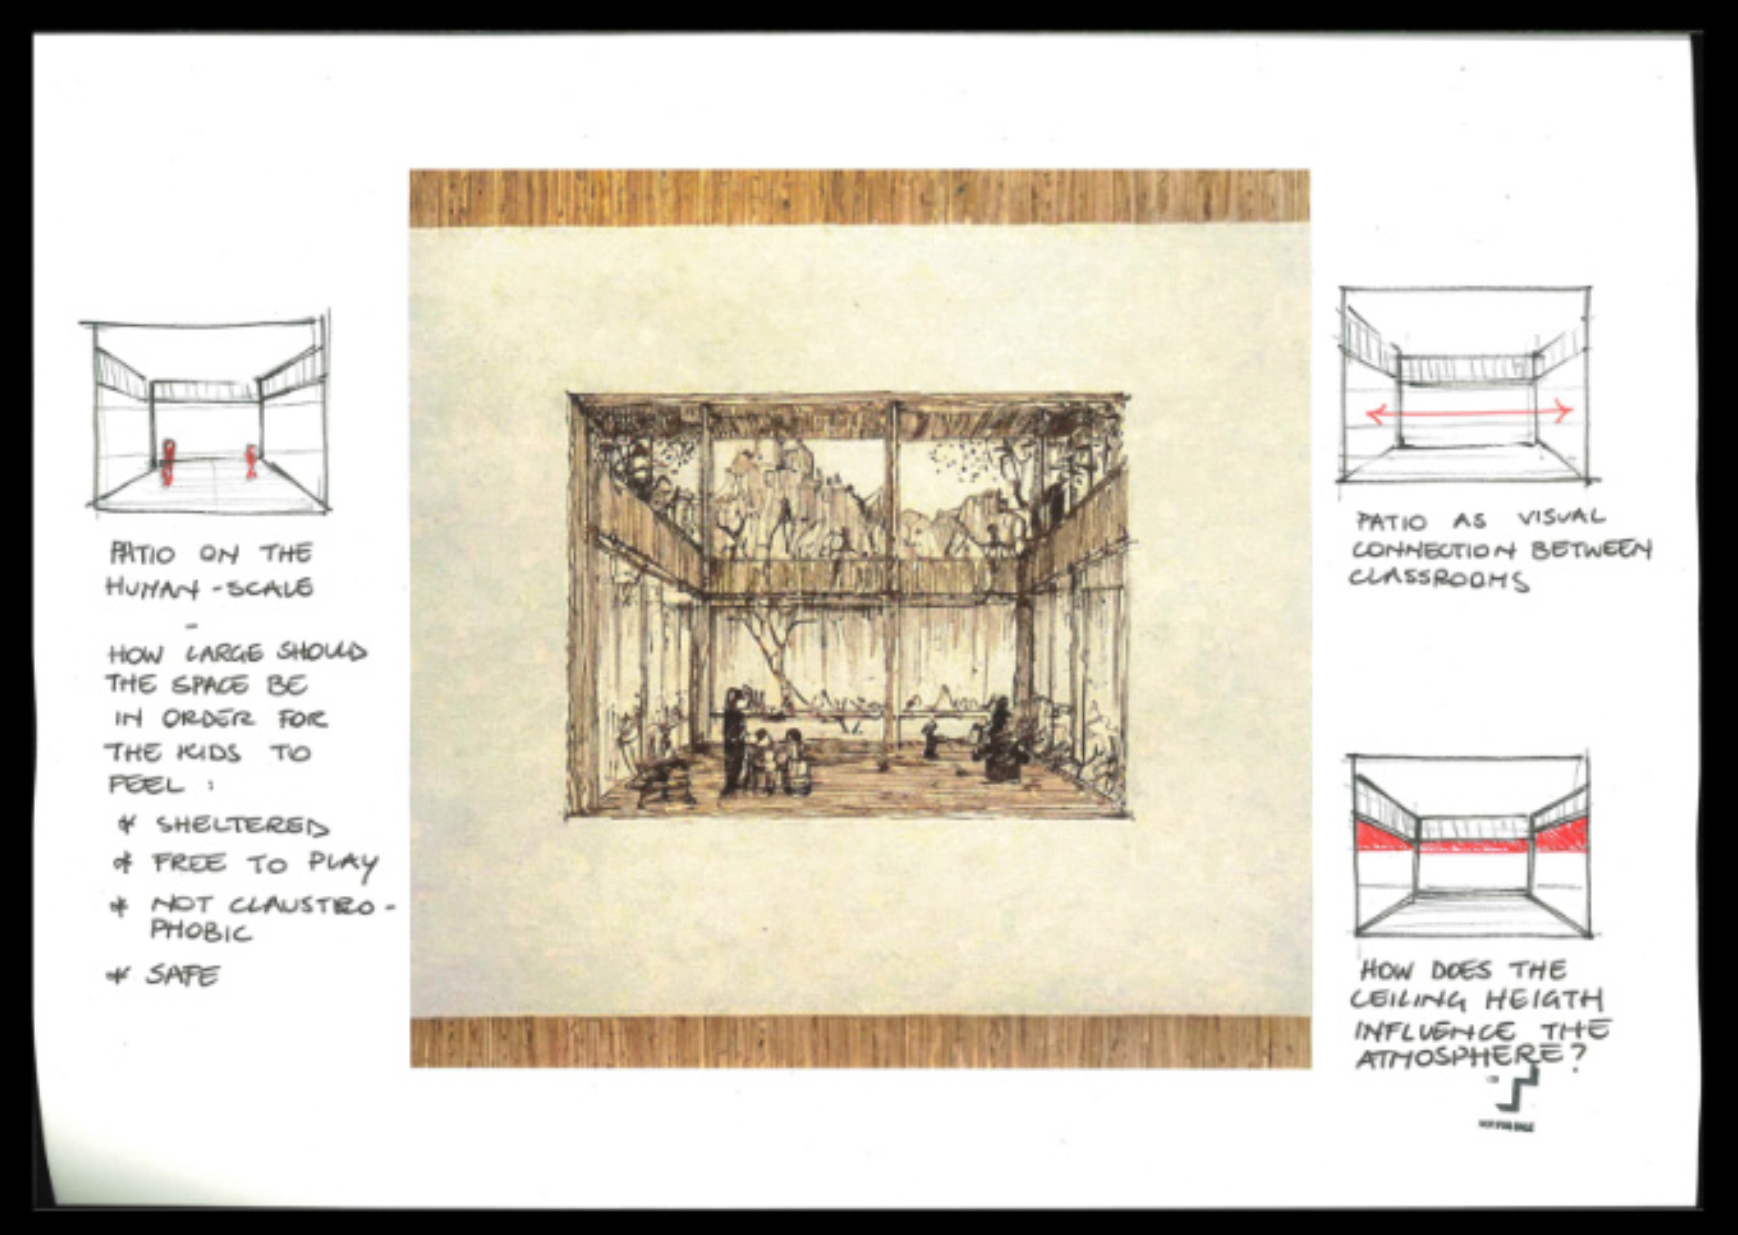 PATIO ON THE
HUMAN-SCALE
-
HOW LARGE SHOULD
THE SPACE BE
IN ORDER FOR
THE KIDS TO
FEEL :
* SHELTERED
* FREE TO PLAY
* NOT CLAUSTRO-
PHOBIC
* SAFE
PATIO AS VISUAL
CONNECTION BETWEEN
CLASSROOMS
HOW DOES THE
CEILING HEIGTH
INFLUENCE THE
ATMOSPHERE?
NOT FOR SALE